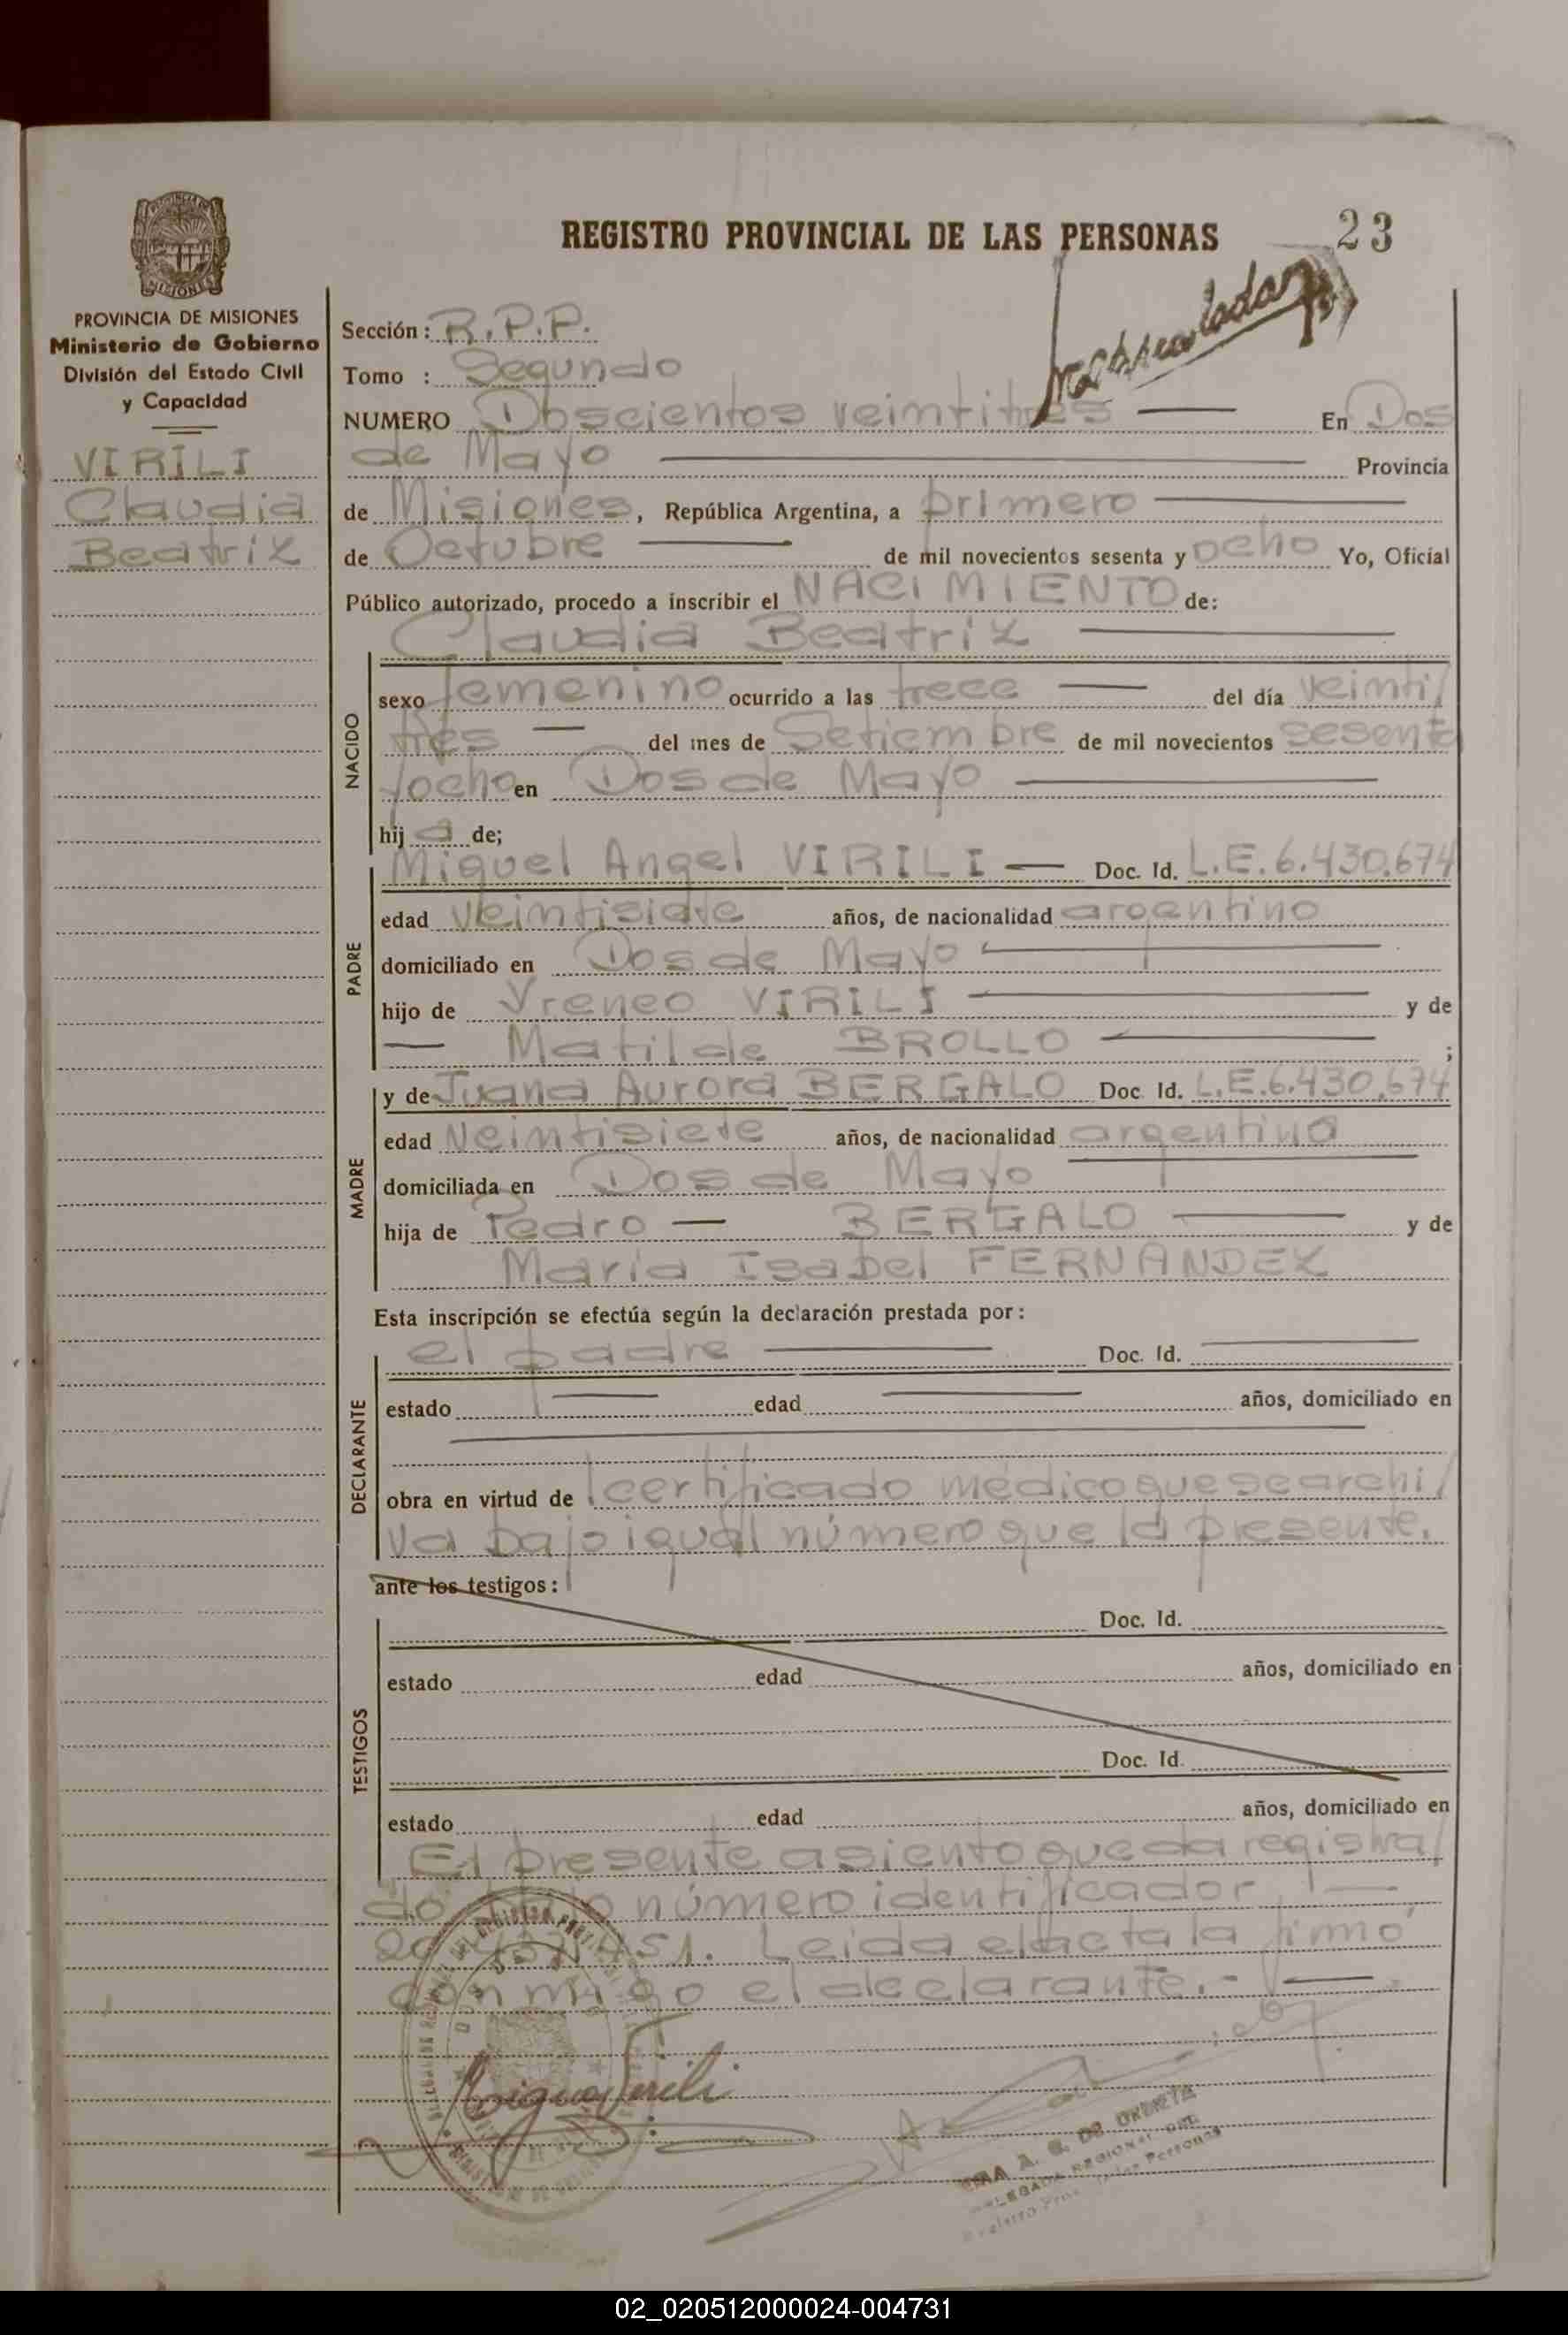 REGISTRO PROVINCIAL DE LAS PERSONAS
23
PROVINCIA DE MISIONES
Ministerio de Gobierno
División del Estado Civil
y Capacidad
VIRILI
Claudia
Beatriz
Sección: R.P.P.
Tomo : Segundo
NUMERO Doscientos veintitres — En Dos
de Mayo — Provincia
de Misiones, República Argentina, a primero —
de Octubre — de mil novecientos sesenta y ocho Yo, Oficial
Público autorizado, procedo a inscribir el NACIMIENTO de:
Claudia Beatriz —
NACIDO
sexo femenino ocurrido a las trece — del día veinti/
tres — del mes de Setiembre de mil novecientos sesenta
yocho en Dos de Mayo —
hij a de;
PADRE
Miguel Angel VIRILI — Doc. Id. L.E.6.430.674
edad veintisiete años, de nacionalidad argentino
domiciliado en Dos de Mayo —
hijo de Yreneo VIRILI — y de
— Matilde BROLLO — ;
MADRE
y de Juana Aurora BERGALO Doc. Id. L.E.6.430.674
edad veintisiete años, de nacionalidad argentina
domiciliada en Dos de Mayo —
hija de Pedro — BERGALO — y de
María Isabel FERNANDEZ
Esta inscripción se efectúa según la declaración prestada por:
DECLARANTE
el padre — Doc. Id. —
estado — edad — años, domiciliado en
—
obra en virtud de certificado médico que se archi/
va bajo igual número que la presente.
ante los testigos:
TESTIGOS
Doc. Id.
estado edad años, domiciliado en
Doc. Id.
estado edad años, domiciliado en
El presente asiento queda registra/
do número identificador —
Leida el acta la firmó
conmigo el declarante.- —
Virili
A. G. DE
02_020512000024-004731